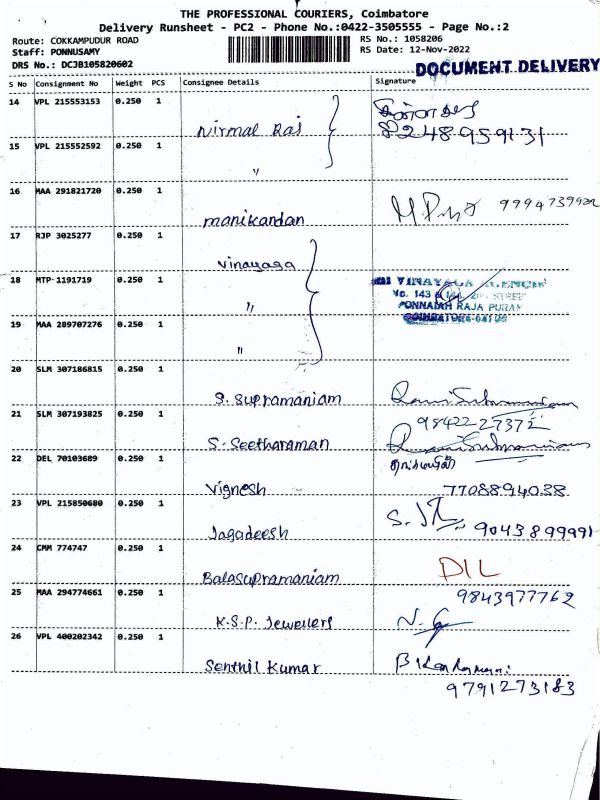 THE PROFESSIONAL COURIERS, Coimbatore
Delivery Runsheet - PC2 - Phone No.:0422-3505555 - Page No.:2
Route: COKKAMPUDUR ROAD RS No.: 1058206
Staff: PONNUSAMY RS Date: 12-Nov-2022
DRS No.: DCJB105820602 DOCUMENT DELIVERY
S No Consignment No Weight PCS Consignee Details Signature
14 VPL 215553153 0.250 1
Nirmal Raj 8248959131
15 VPL 215552592 0.250 1
"
16 MAA 291821720 0.250 1
manikandan
17 RJP 3025277 0.250 1
Vinayaga
18 MTP 1191719 0.250 1 VINAYAGA AGENCIE
" No. 143
PONNAIAH RAJA PURAM
19 MAA 289707276 0.250 1 COIMBATORE
"
20 SLM 307186815 0.250 1
S. Supramaniam
21 SLM 307193825 0.250 1 9842227372
S. Seetharaman
22 DEL 70103689 0.250 1
Vignesh 7708894038
23 VPL 215850680 0.250 1
Jagadeesh 9043899991
24 CMM 774747 0.250 1 DIL
Balasupramaniam
25 MAA 294774661 0.250 1 9843977762
K.S.P. Jewellers
26 VPL 400202342 0.250 1
Senthil Kumar
9791273183